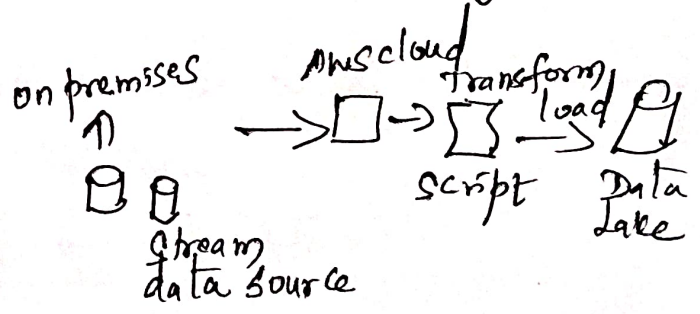 on premises
AWS cloud
transform
load
script
Data
Lake
Stream
data source